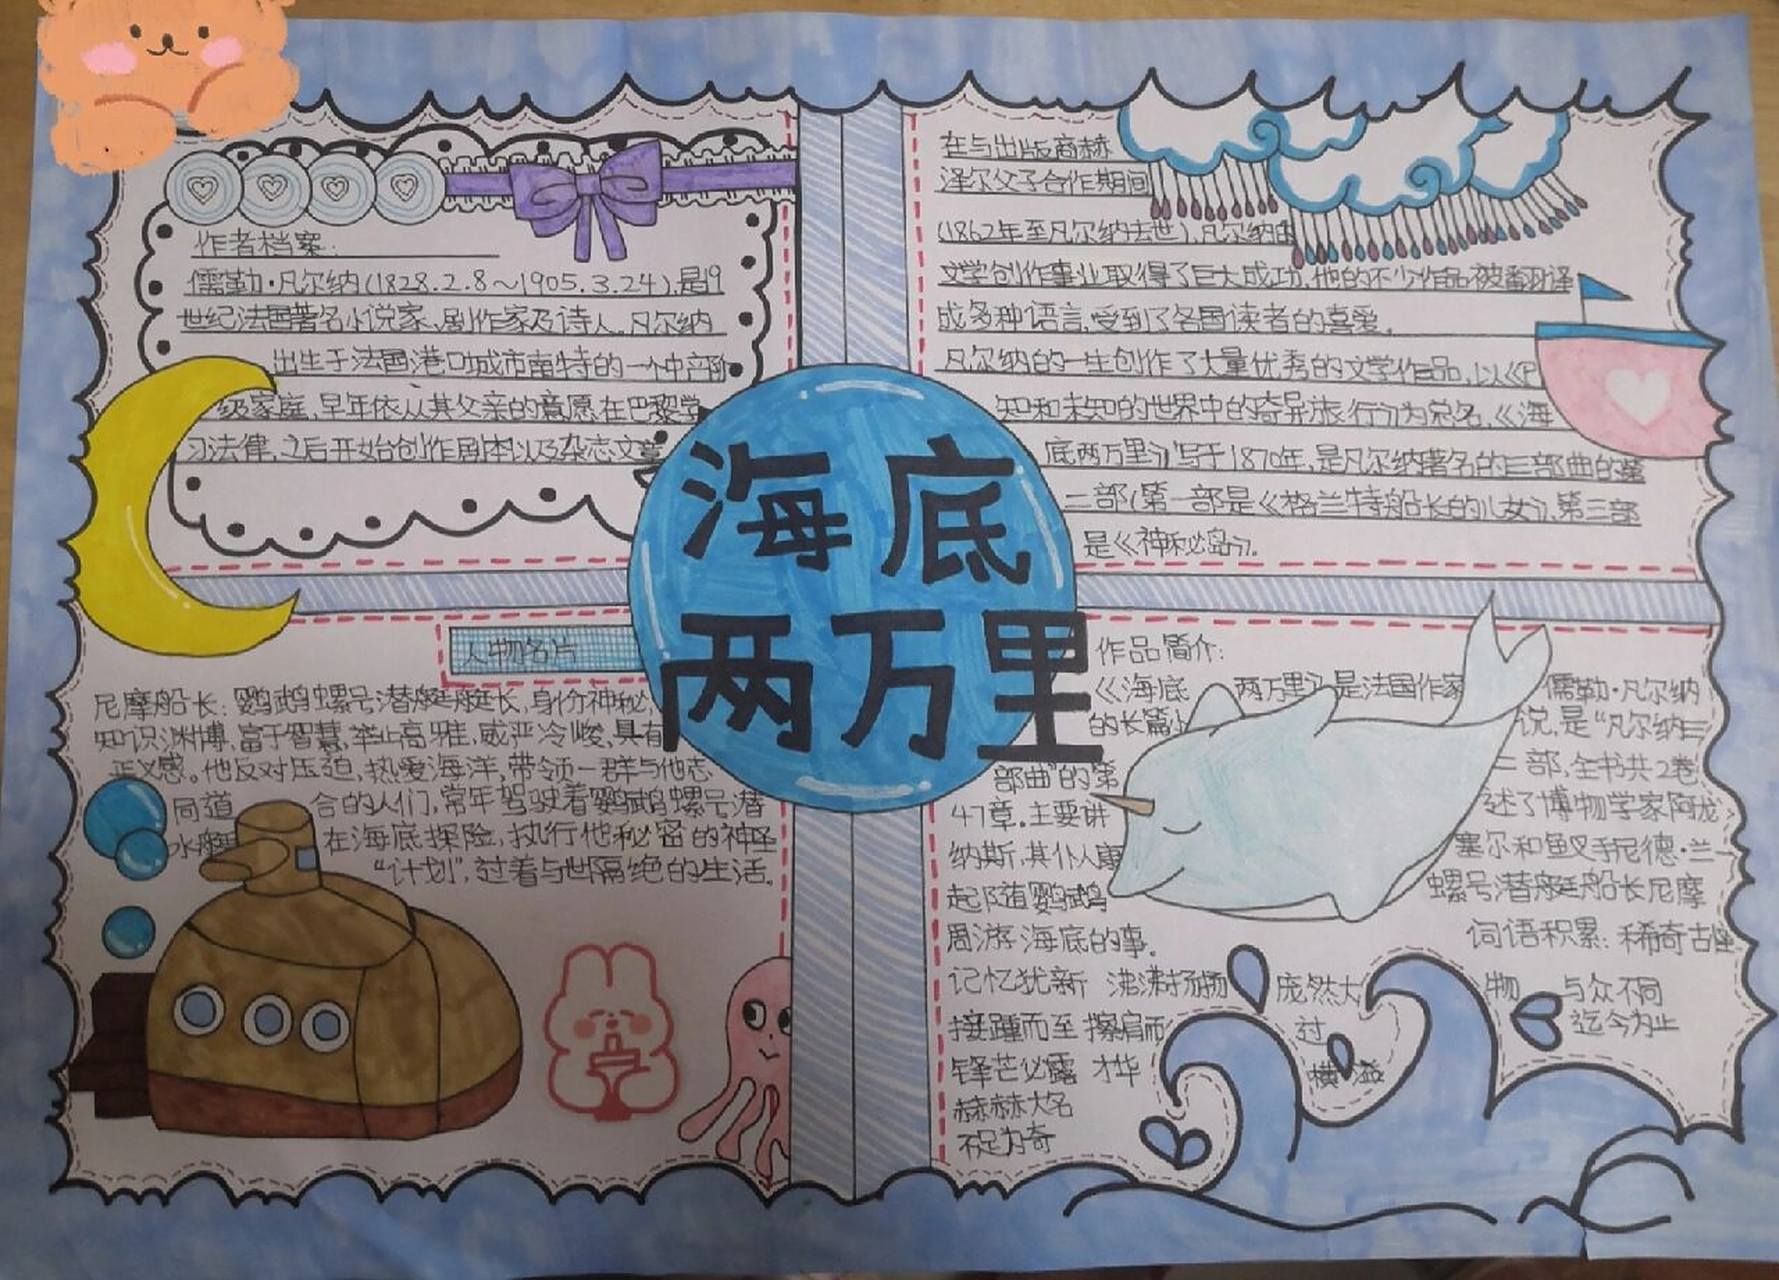 海底
两万里
作者档案:
儒勒·凡尔纳(1828.2.8~1905.3.24),是19
世纪法国著名小说家、剧作家及诗人。凡尔纳
出生于法国港口城市南特的一个中产阶
级家庭,早年依从其父亲的意愿在巴黎学
习法律,之后开始创作剧本以及杂志文章
在与出版商赫
泽尔父子合作期间
(1862年至凡尔纳去世),凡尔纳的
文学创作事业取得了巨大成功,他的不少作品被翻译
成多种语言,受到了各国读者的喜爱。
凡尔纳的一生创作了大量优秀的文学作品,以《已
知和未知的世界中的奇异旅行》为总名,《海
底两万里》写于1870年,是凡尔纳著名的三部曲的第
二部(第一部是《格兰特船长的儿女》,第三部
是《神秘岛》。
人物名片
尼摩船长:鹦鹉螺号潜艇艇长,身份神秘,
知识渊博,富于智慧,举止高雅,威严冷峻,具有
正义感。他反对压迫,热爱海洋,带领一群与他志
同道 合的人们,常年驾驶着鹦鹉螺号潜
水艇 在海底探险,执行他秘密的神圣
“计划”,过着与世隔绝的生活。
作品简介:
《海底 两万里》是法国作家 儒勒·凡尔纳
的长篇小 说,是“凡尔纳三
部曲”的第 二部,全书共2卷
47章。主要讲 述了博物学家阿龙
纳斯,其仆人康 塞尔和鱼叉手尼德·兰一
起随鹦鹉 螺号潜艇船长尼摩
周游海底的事。 词语积累:稀奇古怪
记忆犹新 沸沸扬扬 庞然大 物 与众不同
接踵而至 擦肩而 过 迄今为止
锋芒必露 才华 横溢
赫赫大名
不足为奇